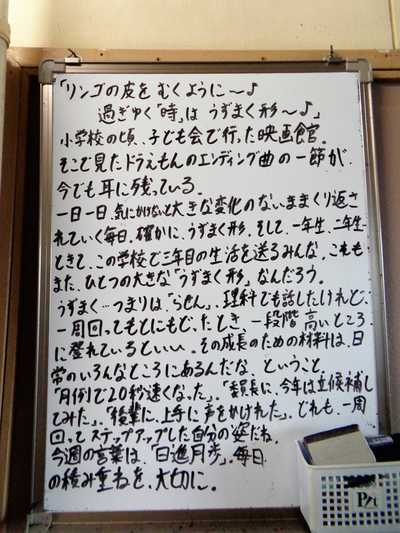 「リンゴの皮を むくように～♪
過ぎゆく「時」は うずまく形～♪」
小学校の頃、子ども会で行った映画館。
そこで見たドラえもんのエンディング曲の一節が、
今でも耳に残っている。
一日一日、気にかけないと大きな変化のないままくり返さ
れていく毎日。確かに、うずまく形。そして、一年生、二年生
ときて、この学校で三年目の生活を送るみんな。これも
また、ひとつの大きな「うずまく形」なんだろう。
うずまく…つまりは、「らせん」。理科でも話したけれど、
一周回ってもとにもどったとき、一段階高いところ
に登れているといい。その成長のための材料は、日
常のいろんなところにあるんだな、ということ。
「月例で20秒速くなった」、「委員長に、今年は立候補し
てみた」、「後輩に、上手に声をかけれた」。どれも、一周
回ってステップアップした自分の姿だね。
今週の言葉は、「日進月歩」。毎日
の積み重ねを、大切に。